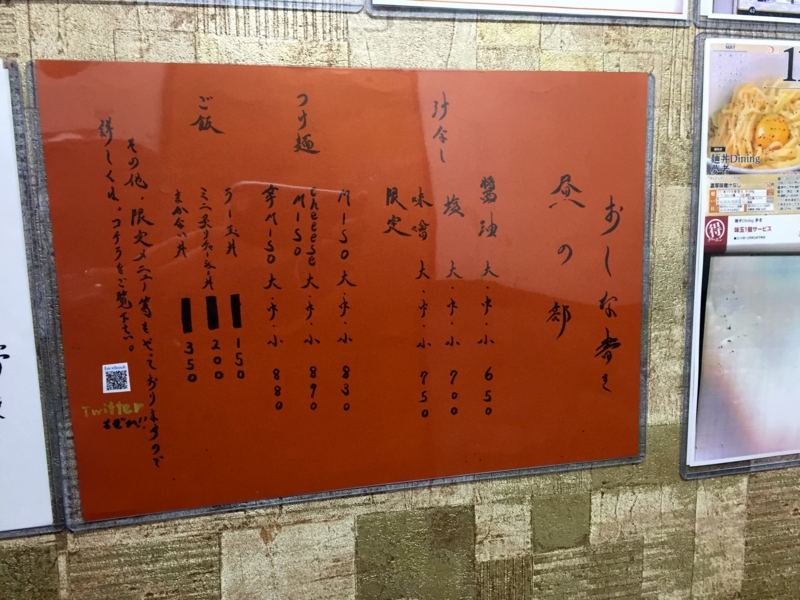 おしながき
昼の部
汁なし
醤油 大・中・小 650
塩 大・中・小 700
味噌 大・中・小 750
限定
つけ麺
MISO 大・中・小 830
cheeese MISO 大・中・小 890
辛MISO 大・中・小 880
ご飯
ラー玉丼 150
ミニ炙りチャーシュー丼 200
まかない丼 350
その他、限定メニュー等ものせておりますので
詳しくは、コチラをご覧下さい。
Twitter
もぜひ!!
麺丼Dining
得
味玉1個サービス